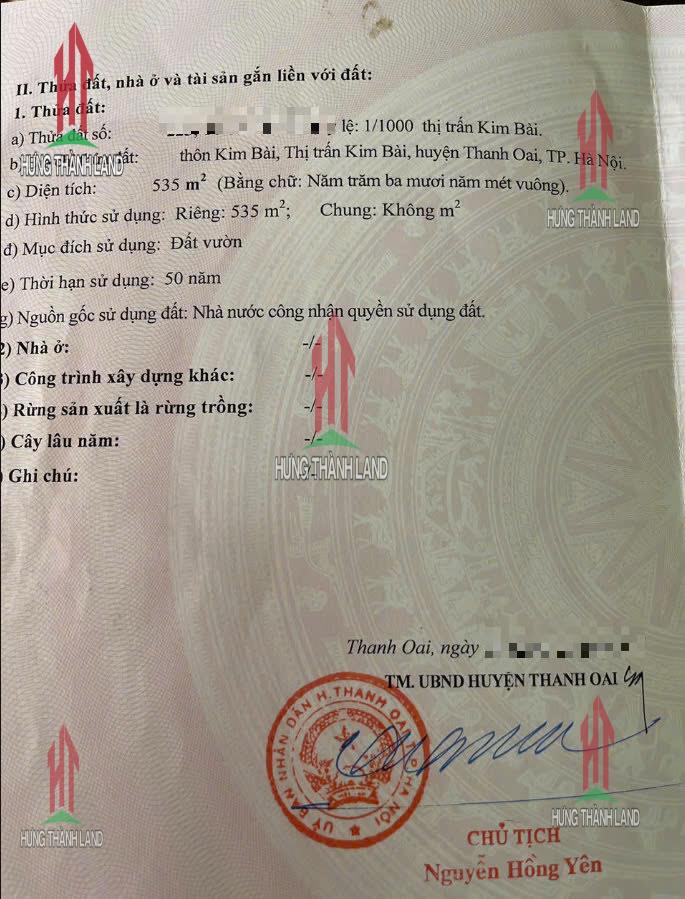 II. Thửa đất, nhà ở và tài sản gắn liền với đất:
1. Thửa đất:
a) Thửa đất số: lệ: 1/1000 thị trấn Kim Bài.
b) đất: thôn Kim Bài, Thị trấn Kim Bài, huyện Thanh Oai, TP. Hà Nội.
c) Diện tích: 535 m² (Bằng chữ: Năm trăm ba mươi năm mét vuông).
d) Hình thức sử dụng: Riêng: 535 m²; Chung: Không m²
đ) Mục đích sử dụng: Đất vườn
e) Thời hạn sử dụng: 50 năm
g) Nguồn gốc sử dụng đất: Nhà nước công nhận quyền sử dụng đất.
2) Nhà ở: -/-
) Công trình xây dựng khác: -/-
) Rừng sản xuất là rừng trồng: -/-
) Cây lâu năm: -/-
) Ghi chú:
Thanh Oai, ngày
TM. UBND HUYỆN THANH OAI
ỦY BAN NHÂN DÂN H. THANH OAI T.P HÀ NỘI
CHỦ TỊCH
Nguyễn Hồng Yên
HƯNG THÀNH LAND
HƯNG THÀNH LAND
HƯNG THÀNH LAND
HƯNG THÀNH LAND
HƯNG THÀNH LAND